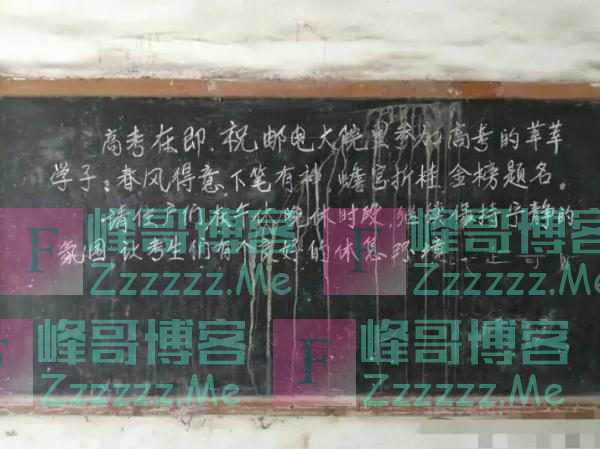 高考在即,祝邮电大院里参加高考的莘莘
学子:春风得意下笔有神 蟾宫折桂 金榜题名。
请住户们在午休晚休时段,继续保持宁静的
氛围 让考生们有个良好的休息环境
F 峰哥博客
Zzzzzz.Me
F 峰哥博客
Zzzzzz.Me
F 峰哥博客
Zzzzzz.Me
F 峰哥博客
Zzzzzz.Me
F 峰哥博客
Zzzzzz.Me
F 峰哥博客
Zzzzzz.Me